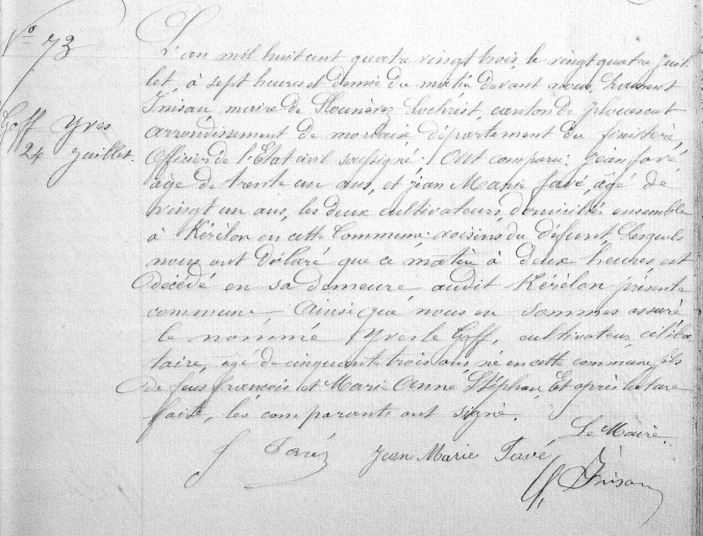 N° 73
Goff Yves
24 juillet.
L'an mil huit cent quatre vingt trois, le vingt quatre juil
let à sept heures et demie du matin devant nous,
Inisan, maire de Plounévez Lochrist, canton de plouescat
arrondissement de morlaix, département du finistère,
Officier de l'Etat civil soussigné: Ont comparu: jean favé
âgé de trente un ans, et jean Marie favé, âgé de
vingt un ans, les deux cultivateurs, domiciliés ensemble
à Kérélon en cette Commune; voisins du défunt, lesquels
nous ont déclaré que ce matin à deux heures est
décédé en sa demeure audit Kérélon présente
commune, Ainsi que nous en sommes assuré
le nommé Yves le Goff, cultivateur, céliba
taire, âgé de cinquante trois ans, né en cette commune, fils
de feus françois et Marie Anne Stéphan, Et après lecture
faite, les comparants ont signé.
Le Maire
J Favé Jean Marie Favé
Inisan